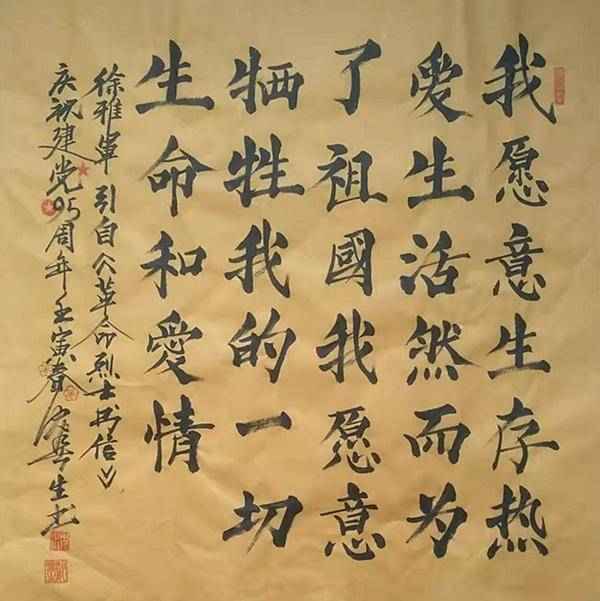 我愿意生存热
愛生活然而为
了祖國我愿意
牺牲我的一切
生命和愛情
徐雅軍 引自《革命烈士书信》
庆祝建党95周年壬寅春生书